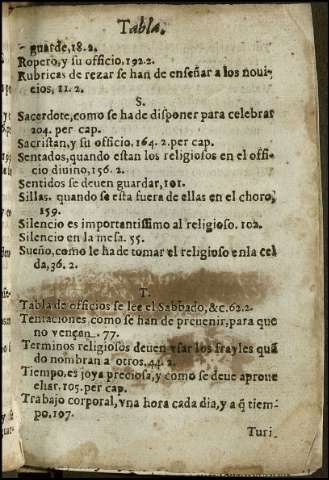 Tabla.
guarde, 18. 2.
Ropero, y su officio, 192. 2.
Rubricas de rezar se han de enseñar a los noui-
cios, 11. 2.
S.
Sacerdote, como se ha de disponer para celebrar
204. per cap.
Sacristan, y su officio. 164. 2. per cap.
Sentados, quando estan los religiosos en el offi-
cio diuino, 156. 2.
Sentidos se deuen guardar, 101.
Sillas. quando se esta fuera de ellas en el choro,
159.
Silencio es importantissimo al religioso. 102.
Silencio en la mesa. 55.
Sueño, como le ha de tomar el religioso en la cel
da, 36. 2.
T.
Tabla de officios se lee el Sabbado, &c. 62. 2.
Tentaciones, como se han de preuenir, para que
no vençan. 77.
Terminos religiosos deuen vsar los frayles quā
do nombran a otros, 44. 2.
Tiempo, es joya preciosa, y como se deue aproue
char. 105. per cap.
Trabajo corporal, vna hora cada dia, y a q̃ tiem-
po. 107.
Turi-